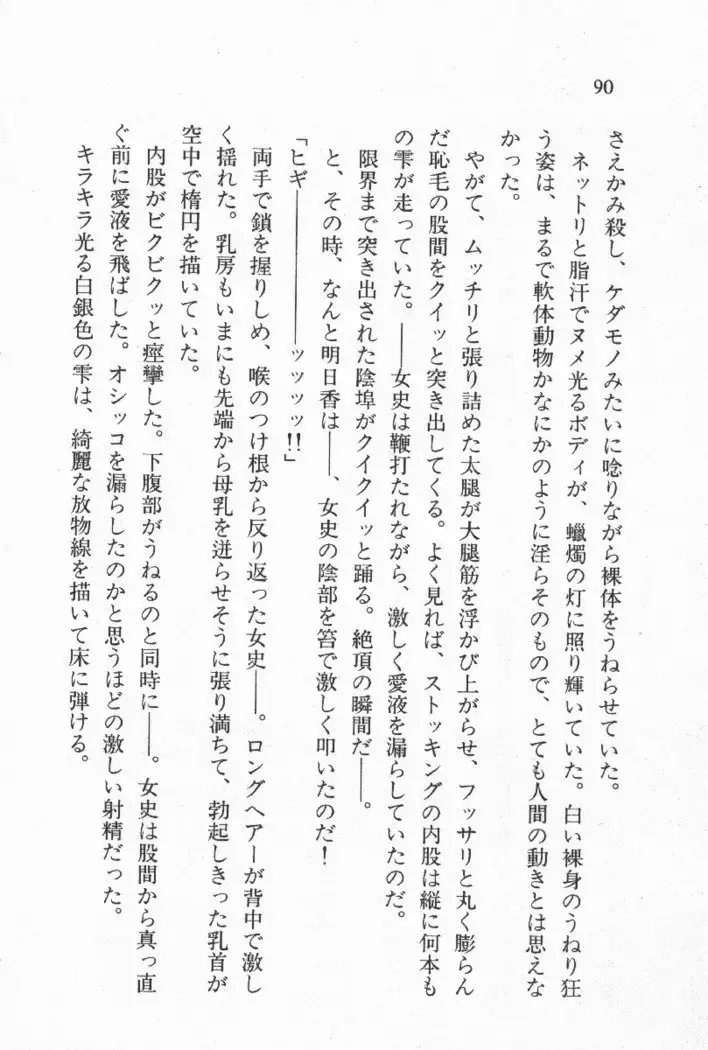 90
さえかみ殺し、ケダモノみたいに唸りながら裸体をうねらせていた。
ネットリと脂汗でヌメ光るボディが、蠟燭の灯に照り輝いていた。白い裸身のうねり狂
う姿は、まるで軟体動物かなにかのように淫らそのもので、とても人間の動きとは思えな
かった。
やがて、ムッチリと張り詰めた太腿が大腿筋を浮かび上がらせ、フッサリと丸く膨らん
だ恥毛の股間をクイッと突き出してくる。よく見れば、ストッキングの内股は縦に何本も
の雫が走っていた。――女史は鞭打たれながら、激しく愛液を漏らしていたのだ。
限界まで突き出された陰埠がクイクイッと踊る。絶頂の瞬間だ――。
と、その時、なんと明日香は――、女史の陰部を笞で激しく叩いたのだ！
「ヒギ――――――――ッッッッ!!」
両手で鎖を握りしめ、喉のつけ根から反り返った女史――。ロングヘアーが背中で激し
く揺れた。乳房もいまにも先端から母乳を迸らせそうに張り満ちて、勃起しきった乳首が
空中で楕円を描いていた。
内股がビクビクッと痙攣した。下腹部がうねるのと同時に――。女史は股間から真っ直
ぐ前に愛液を飛ばした。オシッコを漏らしたのかと思うほどの激しい射精だった。
キラキラ光る白銀色の雫は、綺麗な放物線を描いて床に弾ける。